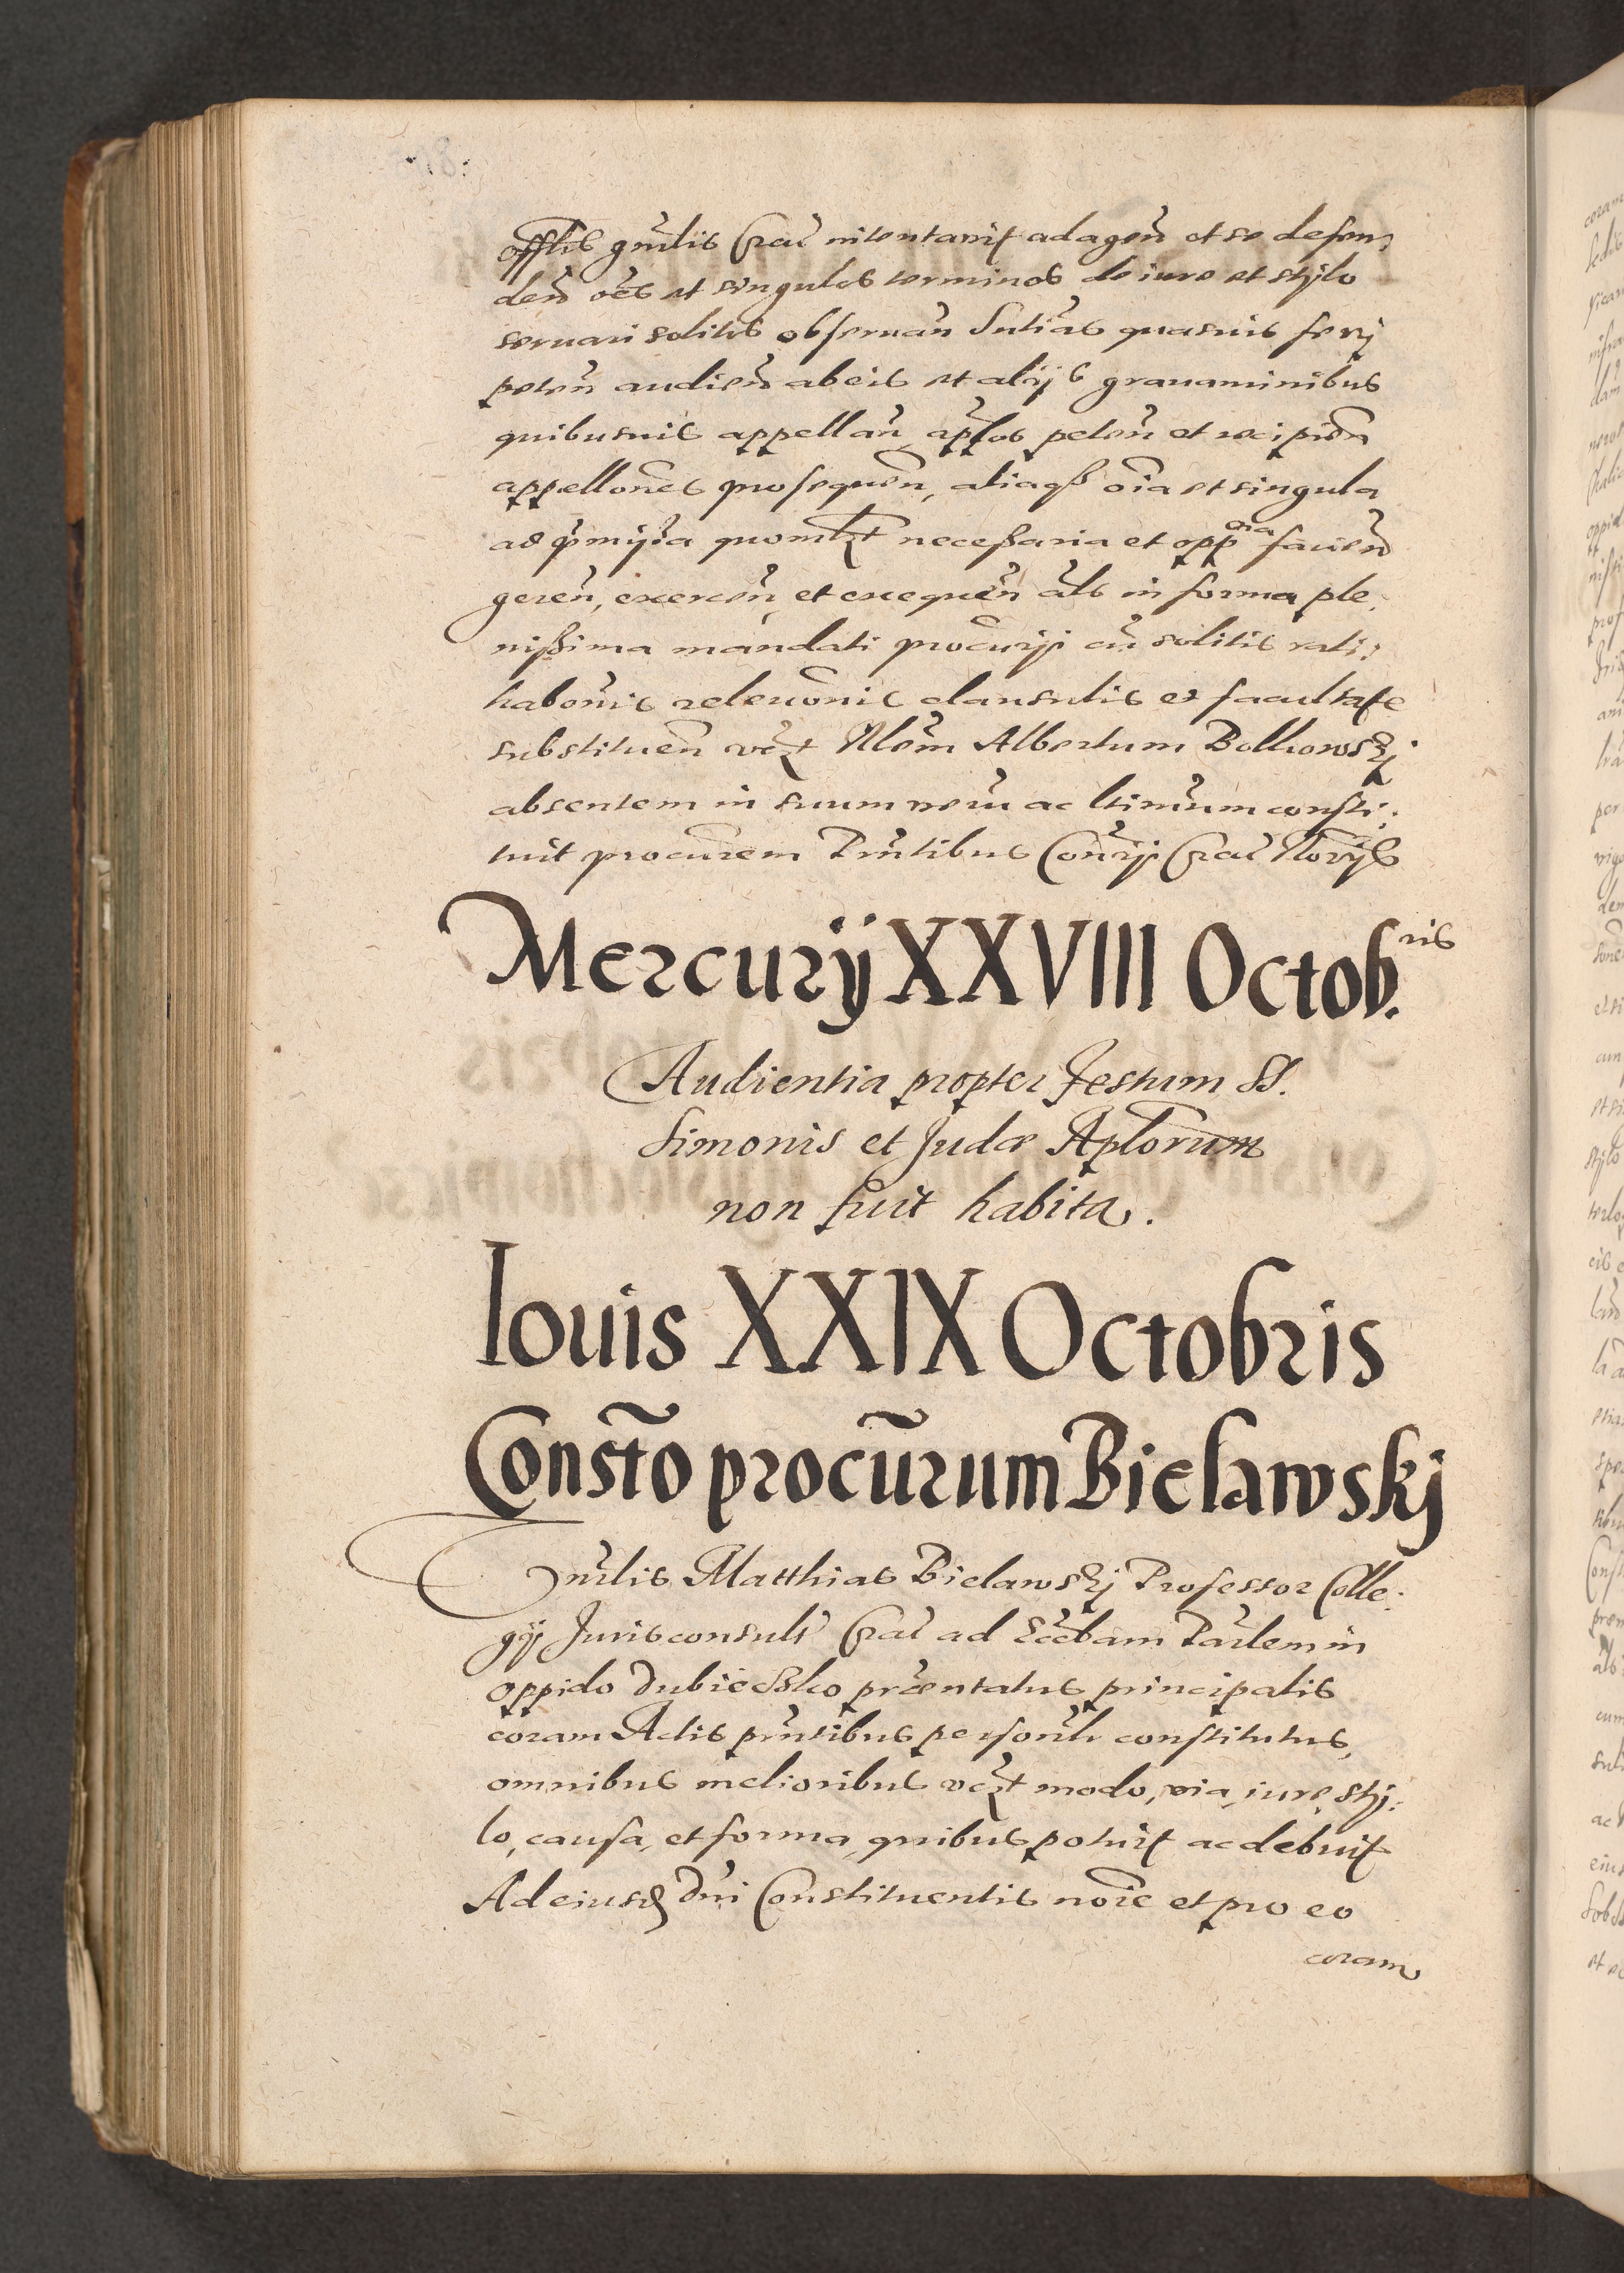 offlis gnrlis Crac̃ intentarit ad agen̄ et se defen,
den̄ oēs et singulos terminos de iure et stylo
seruari solitos obseruan̄ Sntias quasuis ferj
peten̄ audien̄ ab eis et alijs grauaminibus
quibusuis appellan̄ apl̄os peten̄ et recipien̄
appellones prosequen̄, aliaqȝ oīa et singula
ad p̄missa quomlt necessaria et oppna facien̄
geren̄, exercen̄, et exequen̄ als in forma ple,
nissima mandati procurij cū solitis rati:
habonis releuonis clausulis et facultate
substituen̄ vt Nlem Albertum Bolkowskj
absentem in suum verū ac ltimum consti:
tuit procurem Pntibus Conrij Crac̃ Norijs
Mercurij XXVIII Octob.ris
Audientia propter festum SS.
Simonis et Judæ Aplorum
non fuit habita.
Iouis XXIX Octobris
Consto procurum Bielawskj
Nlis Matthias Bielawskj Professor Colle:
gij Jurisconsult Crac̃ ad Eccliam Parlem in
oppido Dubieczko præntatus principalis
coram Actis pntibus personlr constitutus,
omnibus melioribus vt modo, via, iure, sty:
lo, causa, et forma, quibus potuit ac debuit
Ad eiusd Dni Constituentis noie et pro eo
coram